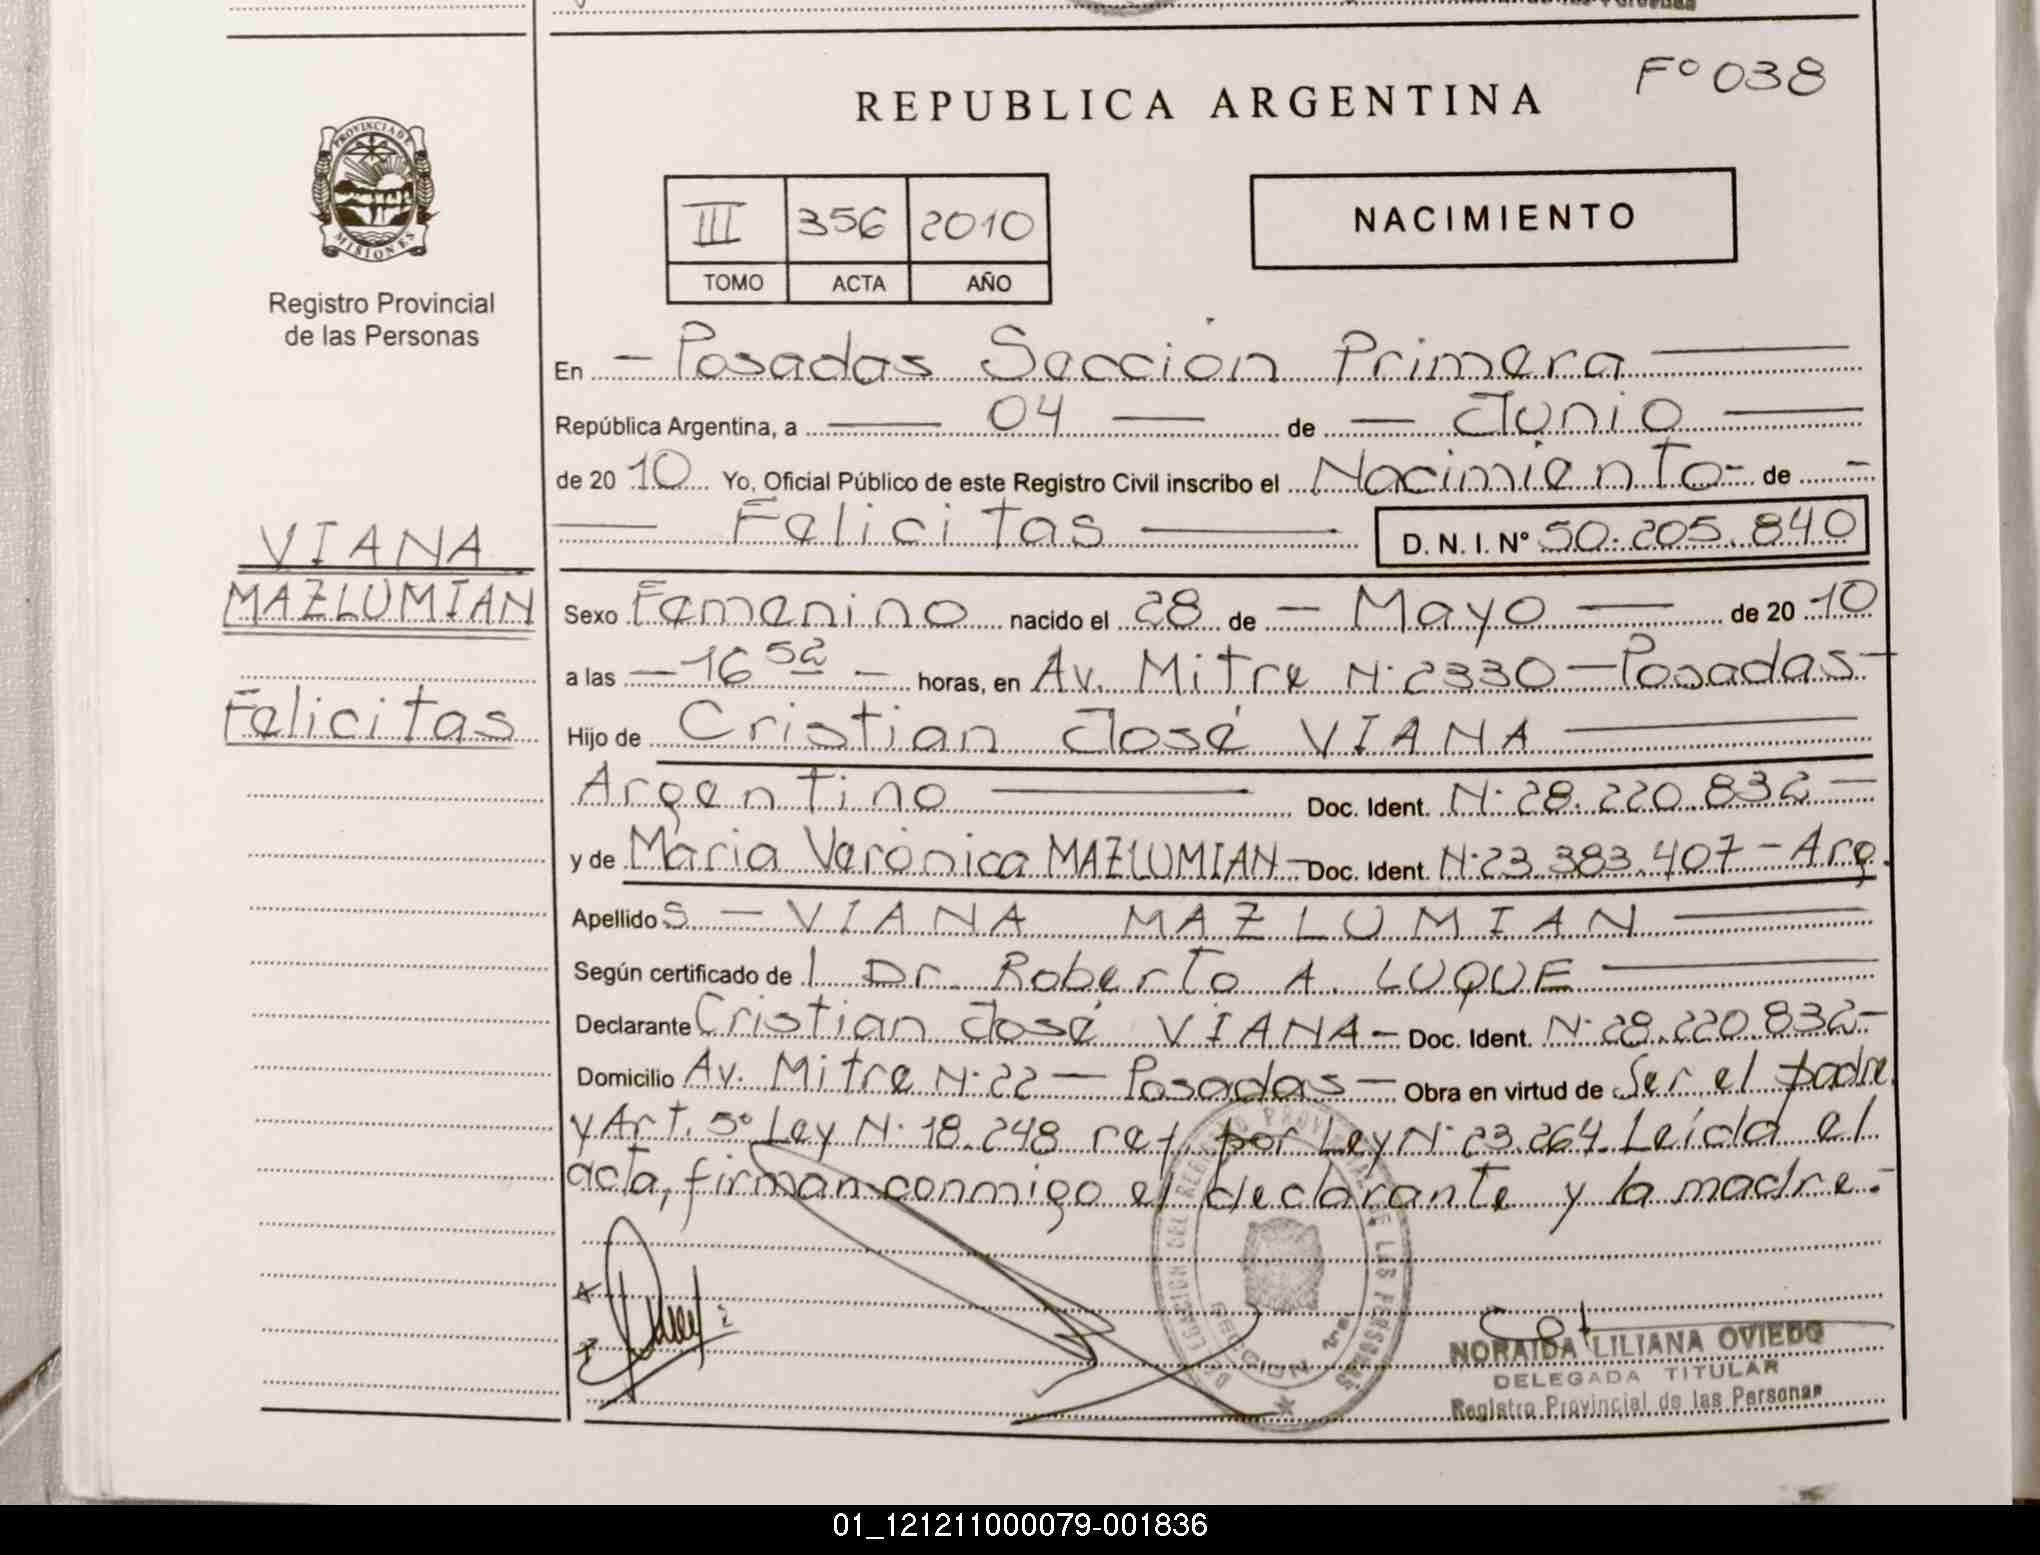 Fº 038
REPUBLICA ARGENTINA
PROVINCIA DE
MISIONES
Registro Provincial
de las Personas
III 356 2010
TOMO ACTA AÑO
NACIMIENTO
En - Posadas Sección Primera
República Argentina, a 04 de - Junio
de 20 10 Yo, Oficial Público de este Registro Civil inscribo el Nacimiento - de -
Felicitas D. N. I. Nº 50.205.840
VIANA
MAZLUMIAN
Felicitas
Sexo Femenino nacido el 28 de - Mayo de 20 10
a las - 16 52 - horas, en Av. Mitre N. 2330 - Posadas -
Hijo de Cristian José VIANA
Argentino Doc. Ident. N. 28.220.832 -
y de Maria Verónica MAZLUMIAN - Doc. Ident. N. 23.383.407 - Arg.
Apellido s - VIANA MAZLUMIAN
Según certificado de l Dr. Roberto A. LUQUE
Declarante Cristian José VIANA - Doc. Ident. N. 28.220.832 -
Domicilio Av. Mitre N. 22 - Posadas - Obra en virtud de Ser el padre
y Art. 5º Ley N. 18.248 ref por Ley N. 23.264. Leída el
acta, firman conmigo el declarante y la madre. -
DELEGACION DEL REGISTRO PROVINCIAL DE LAS PERSONAS
SECCION 1ra.
NORAIDA LILIANA OVIEDO
DELEGADA TITULAR
Registro Provincial de las Personas
01_121211000079-001836